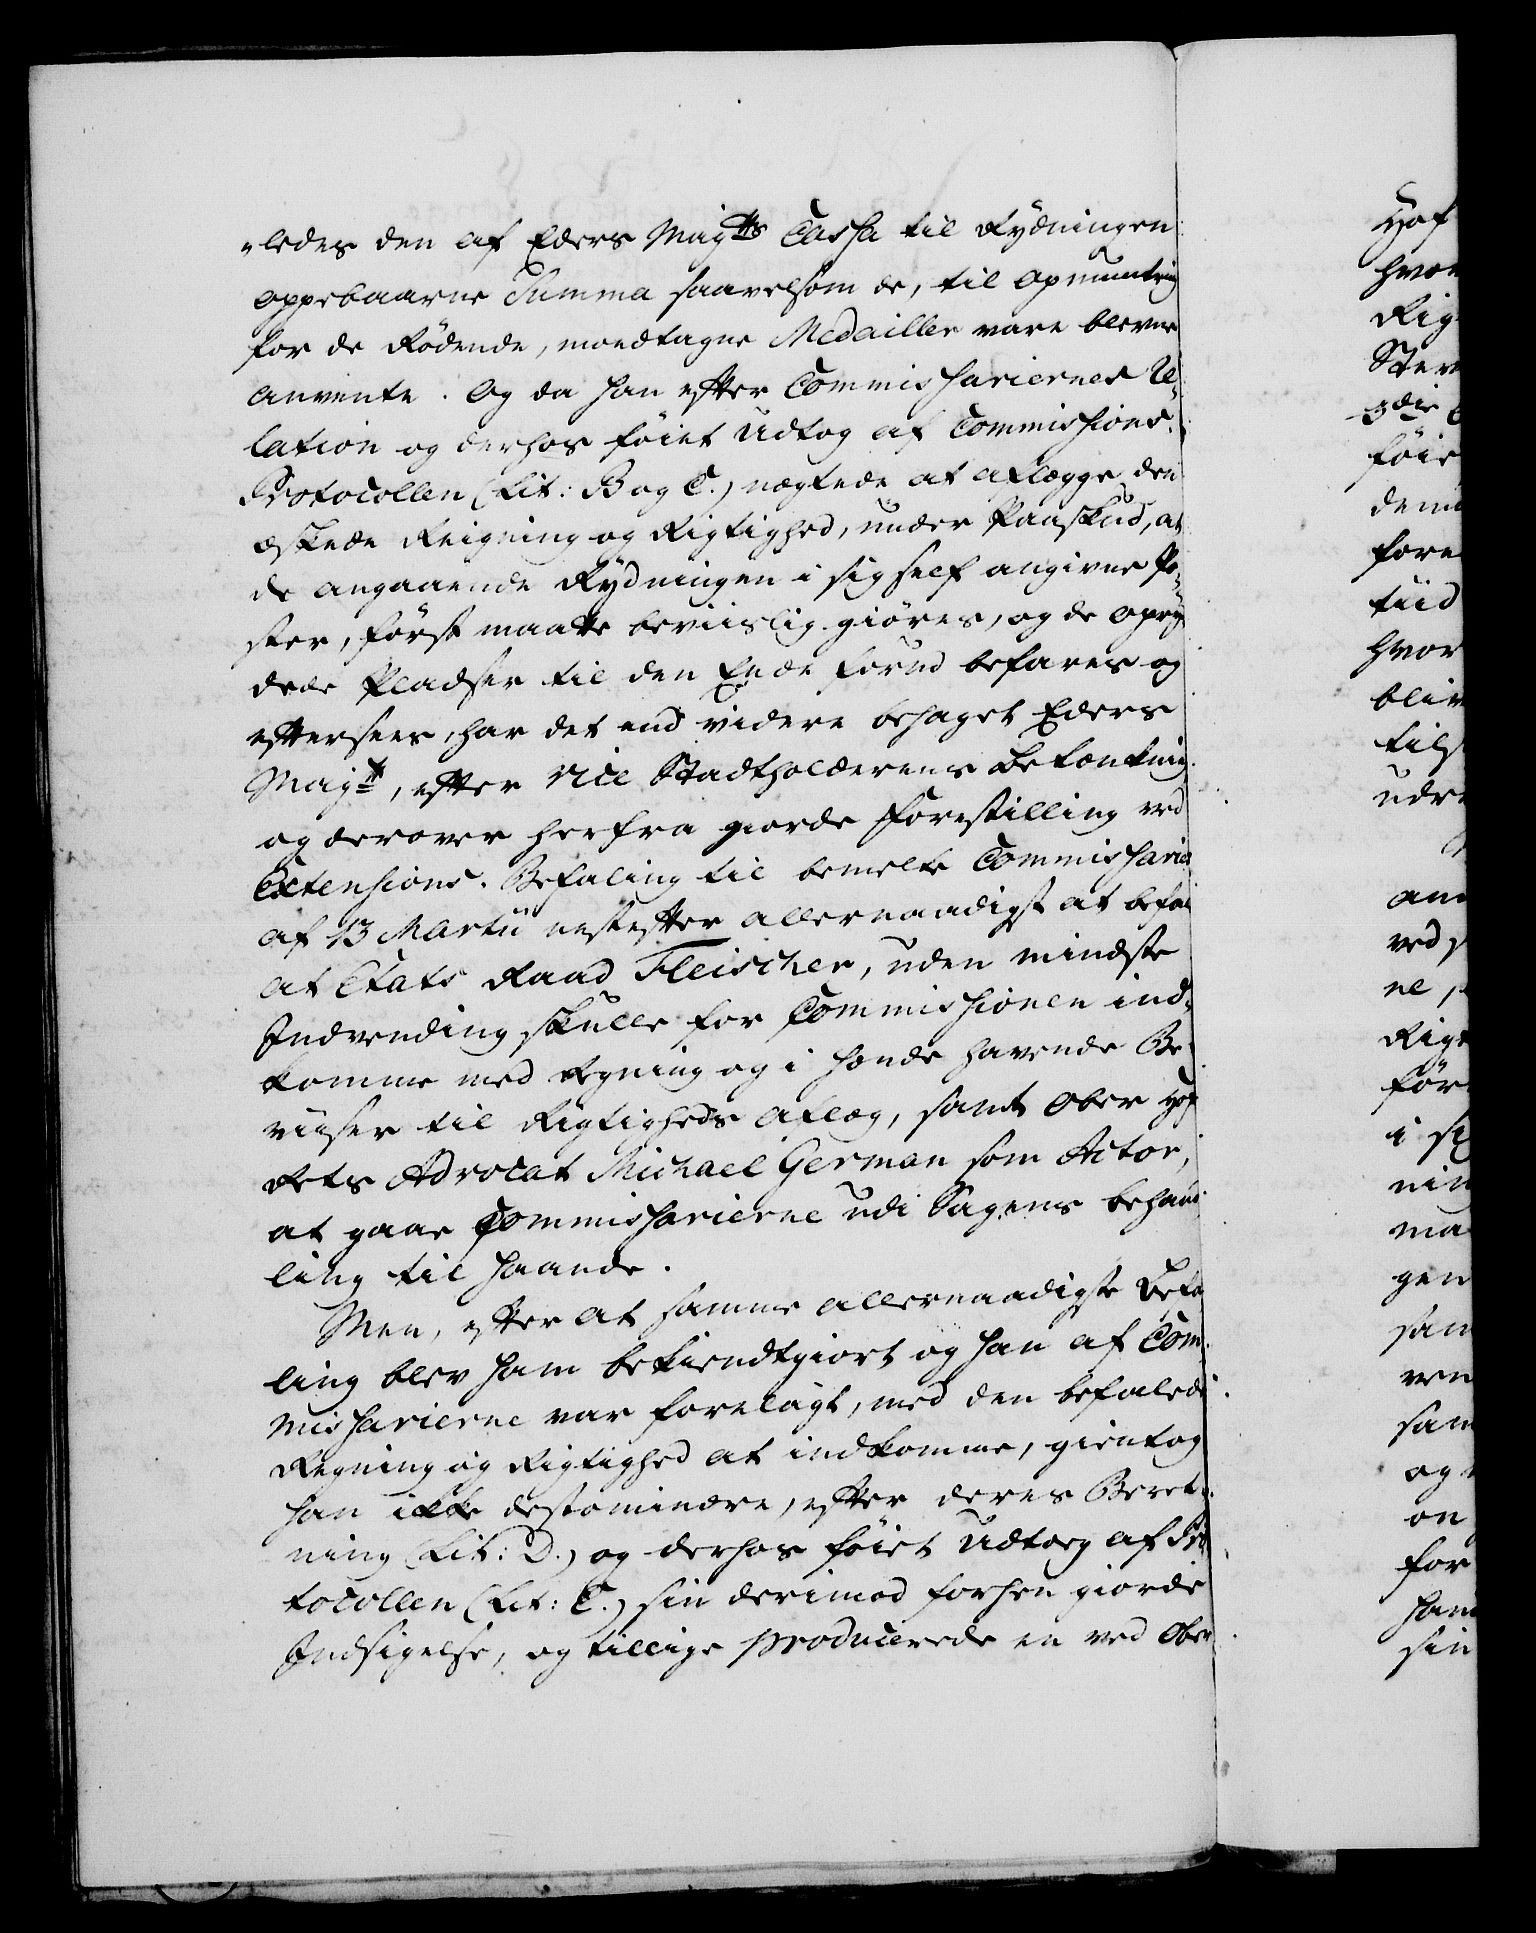 -ledes den af Eders Maj<sup>ts</sup> Cassa til Rydningen
oppebaarne Summa saavelsom de, til Opmuntring
for de Rødende, modtagne Medailler vare blevne
anvente. Og da han efter Commissariernes Re-
lation og derhos føiet Udtog af Commissions-
Protocollen (Lit: B og C.) nægtede at aflægge den
æskede Reigning og Rigtighed, under Paaskud, at
de angaaende Rydningen i sig self angivne Po-
ster, først maatte beviislig giøres, og de opryd
dede Pladser til den Ende forud befares og
eftersees, har det end videre behaget Eders
Maj<sup>t</sup>, efter Vice Stadtholderens Betænkning
og derover herfra giorde Forestilling ved
Extensions-Befaling til bemelte Commissarier
af 13 Martii nestefter allernaadigst at befale
at Etats Raad Fleischer, uden mindste
Indvending skulle for Commissionen ind-
komme med Regning og i hænde havende Be-
viiser til Rigtigheds aflæg, samt Ober Hof
Rets Advocat Michael German som Actor,
at gaae Commissarierne udi Sagens behand
ling til haande.
Men, efter at samme allernaadigste Befa
ling blev ham bekiendtgiort og han af Com-
missarierne var forelagt, med den befalede
Regning og Rigtighed at indkomme, gientog
han ikke destomindre, efter deres Beret-
ning (Lit: D.) og derhos føiet Udtog af Pro
tocollen (Lit: C.) sin derimod forhen giorde
Indsigelse, og tillige producerede en ved Ober
Hof
hvor
Rig
Ster
3die
føie
dem
fore
tiid
hvor
bliv
tils
udr
an
ved
ne,
Rigt
før
i si
nin
ma
gen
sam
ven
sam
og
on
for
ham
sin